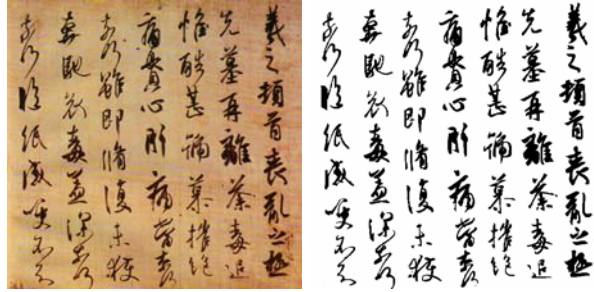 羲之頓首喪亂之極
先墓再離荼毒追
惟酷甚號慕摧絕
痛貫心肝痛當奈何
奈何雖即脩復未獲
奔馳哀毒益深奈何
奈何臨紙感哽不知
羲之頓首喪亂之極
先墓再離荼毒追
惟酷甚號慕摧絕
痛貫心肝痛當奈何
奈何雖即脩復未獲
奔馳哀毒益深奈何
奈何臨紙感哽不知